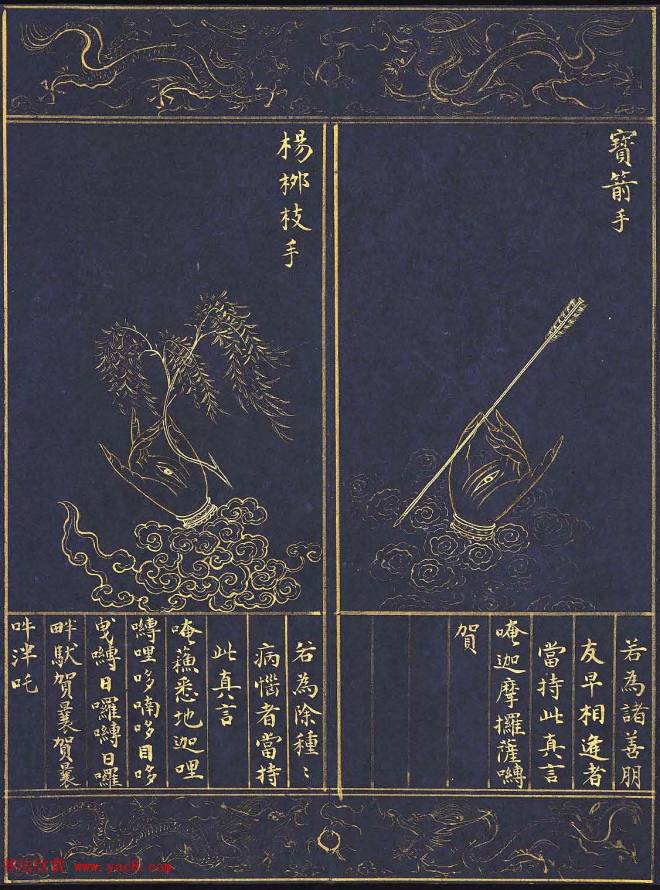 寶箭手
若為諸善朋
友早相逢者
當持此真言
唵迦摩攞薩嚩
賀
楊桞枝手
若為除種〻
病惱者當持
此真言
唵蘓悉地迦哩
嚩哩哆喃哆目哆
曳嚩日囉嚩日囉
畔馱賀曩賀曩
吽泮吒
www.yac8.com